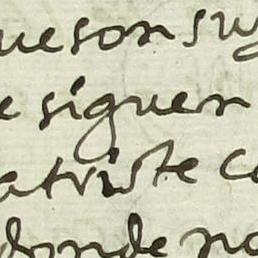 ue son sug
e siguen
atriste co
donde no